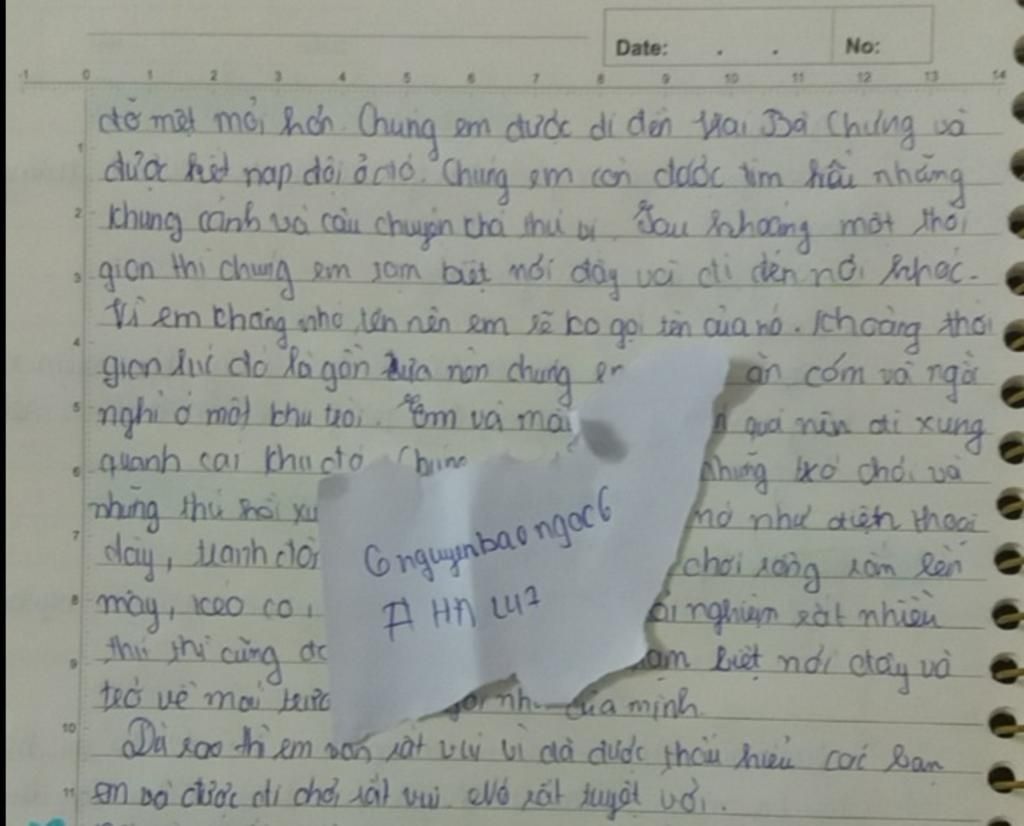 Date: . . No:
-1 0 1 2 3 4 5 6 7 8 9 10 11 12 13 14
đỡ mệt mỏi hơn. Chúng em được đi đến Hai Bà Chưng và
được kết nạp đội ở đó. Chúng em còn được tìm hểu nhãng
khung cảnh và câu chuyện thú vị. Sau khoảng một thời
gian thì chúng em tạm biệt nơi đây và đi đến nơi khác.
Vì em chẳng nhớ tên nên em sẽ ko gọi tên của nó. Khoảng thời
gian lúc đó là gần trưa nên chúng em ăn cơm và ngồi
nghỉ ở một khu trại. Em và quá nên đi xung
quanh cái khu đó. Chúng những trò chơi và
những thứ nơi như điện thoại
dây, tranh chơi rồng rắn lên
mây, kéo co, nghiệm rất nhiều
thứ thì cũng biệt nơi đây và
trở về mái của mình.
Dù sao thì em vẫn rất vui vì đã được thấu hiểu các bạn
em và được đi chơi rất vui. Nó rất tuyệt vời.
6nguyenbaongoc6
A HN 247
1
2
3
4
5
6
7
8
9
10
11